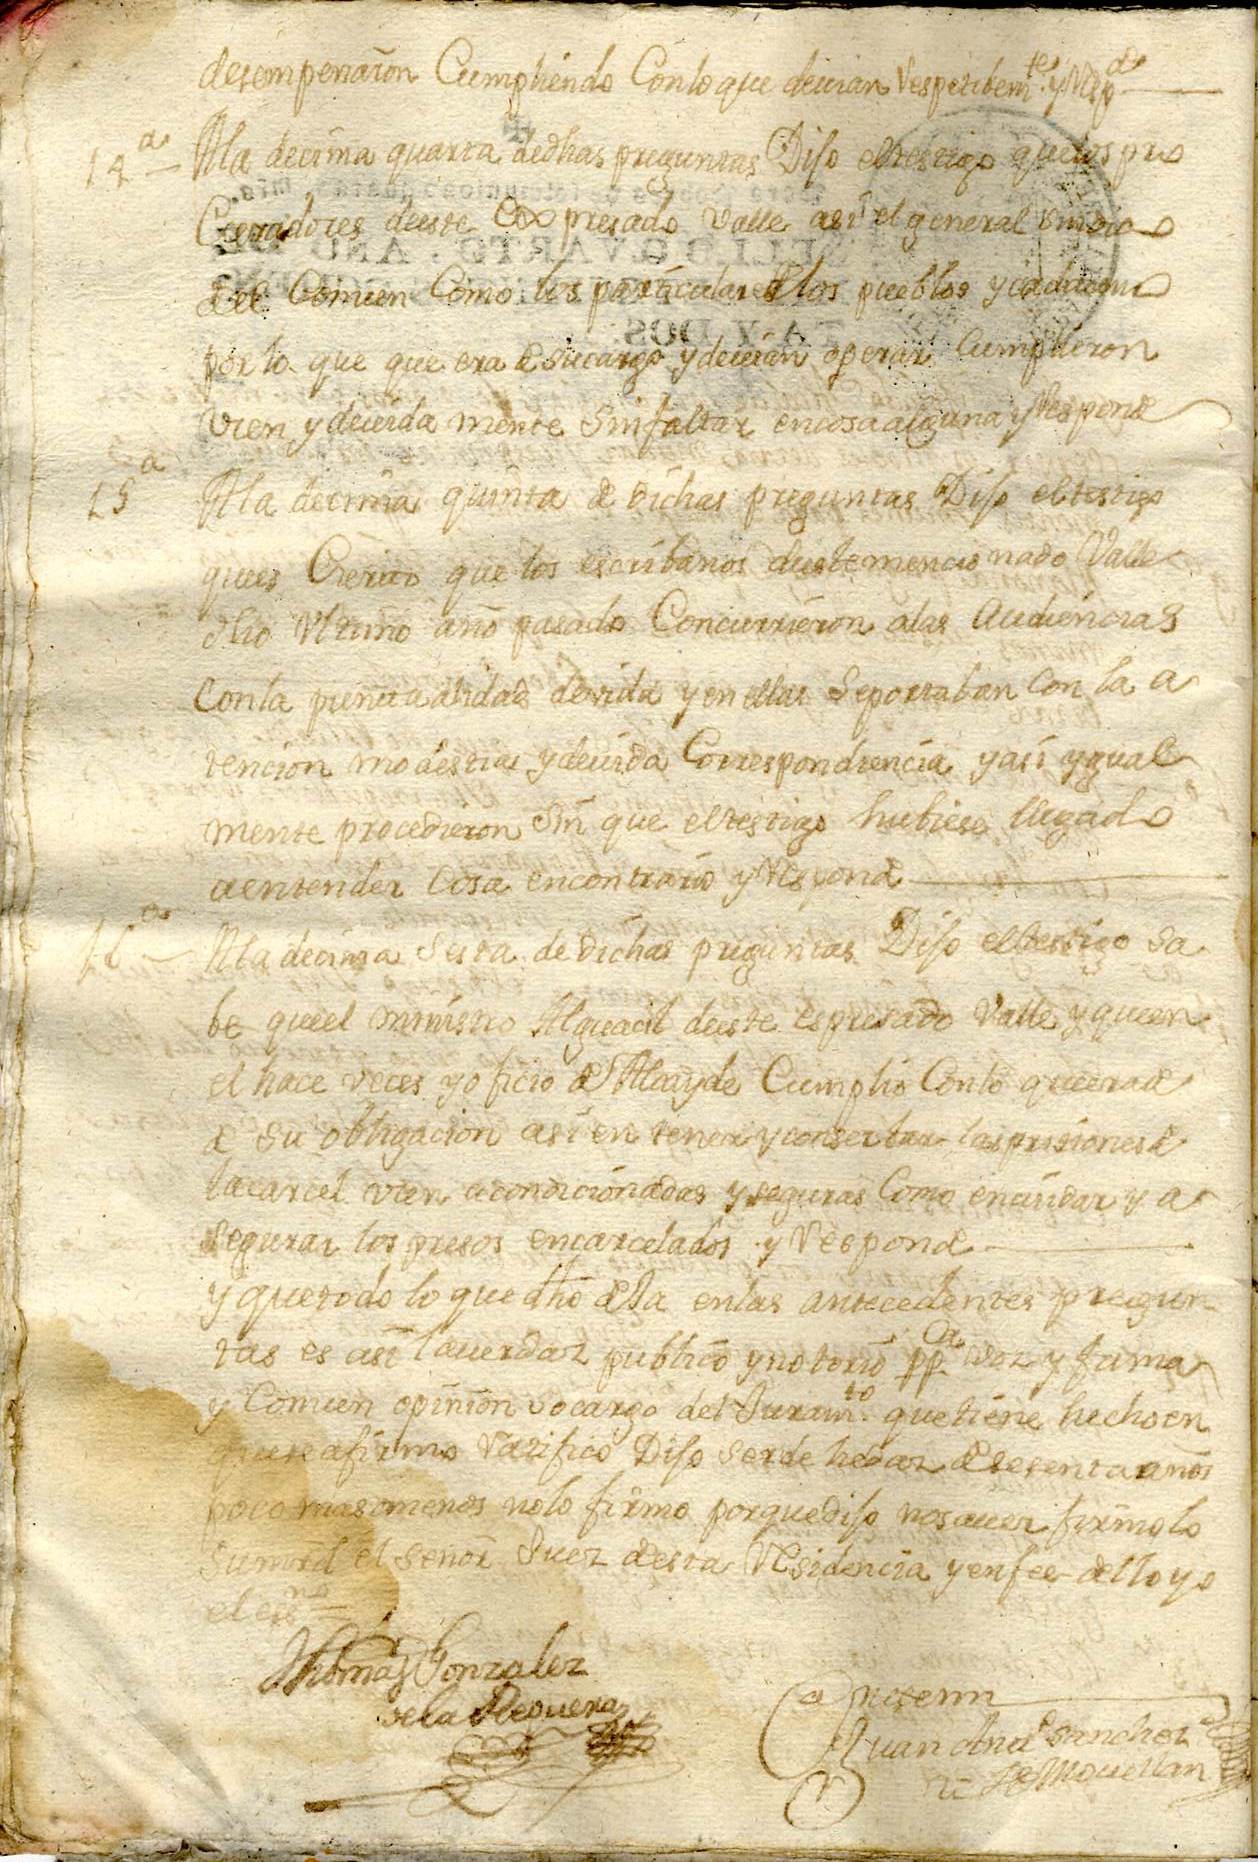 desempeñaron Cumpliendo Conlo que devian Respectibem.te y Resp.de
14.a A la decima quarta de dhas preguntas Dijo el testigo que los pro
Curadores deeste Expresado Valle asi el general sindico
del Comun Como los particulares de los pueblos y cada uno
por lo que que era de su cargo y devian operar Cumplieron
vien y devida mente sin faltar en cosa alguna y Responde
15.a A la decima quinta de dichas preguntas Dijo el testigo
que es Cierto que los escribanos deeste mencionado Valle
dho Ultimo año pasado Concurrieron alas Audiencias
Con la puntualidad devida y en ellas se portaban con la a
tencion modestia y devida Correspondiencia y asi ygual
mente procedieron sin que el testigo hubiese llegado
a entender cosa en contrario y Responde
16.a A la decima sesta de dichas preguntas Dijo el testigo sa
be que el ministro Alguacil deeste espresado Valle y que en
el hace veces y oficio de Alcayde Cumplio Conlo que era de
de su obligacion asi en tener y conserbar las prisiones de
la carcel vien acondicionadas y seguras Como en cuidar y a
segurar los presos encarcelados y Responde
y que todo lo que dho deja en las antecedentes pregun
tas es asi la verdaz publico y notorio pp.ca voz y fama
y Comun opinion so cargo del Juram.to que tiene hecho en
que se afirmo Ratifico Dijo ser de hedaz de sesenta años
poco mas o menos no lo firmo porque dijo no saver firmolo
su mrd el señor Juez de esta Residencia y en fee dello yo
el ess.no
Thomas Gonzalez
de la Reguera
Antemi
Juan Ant.o Sanchez
de Movellan